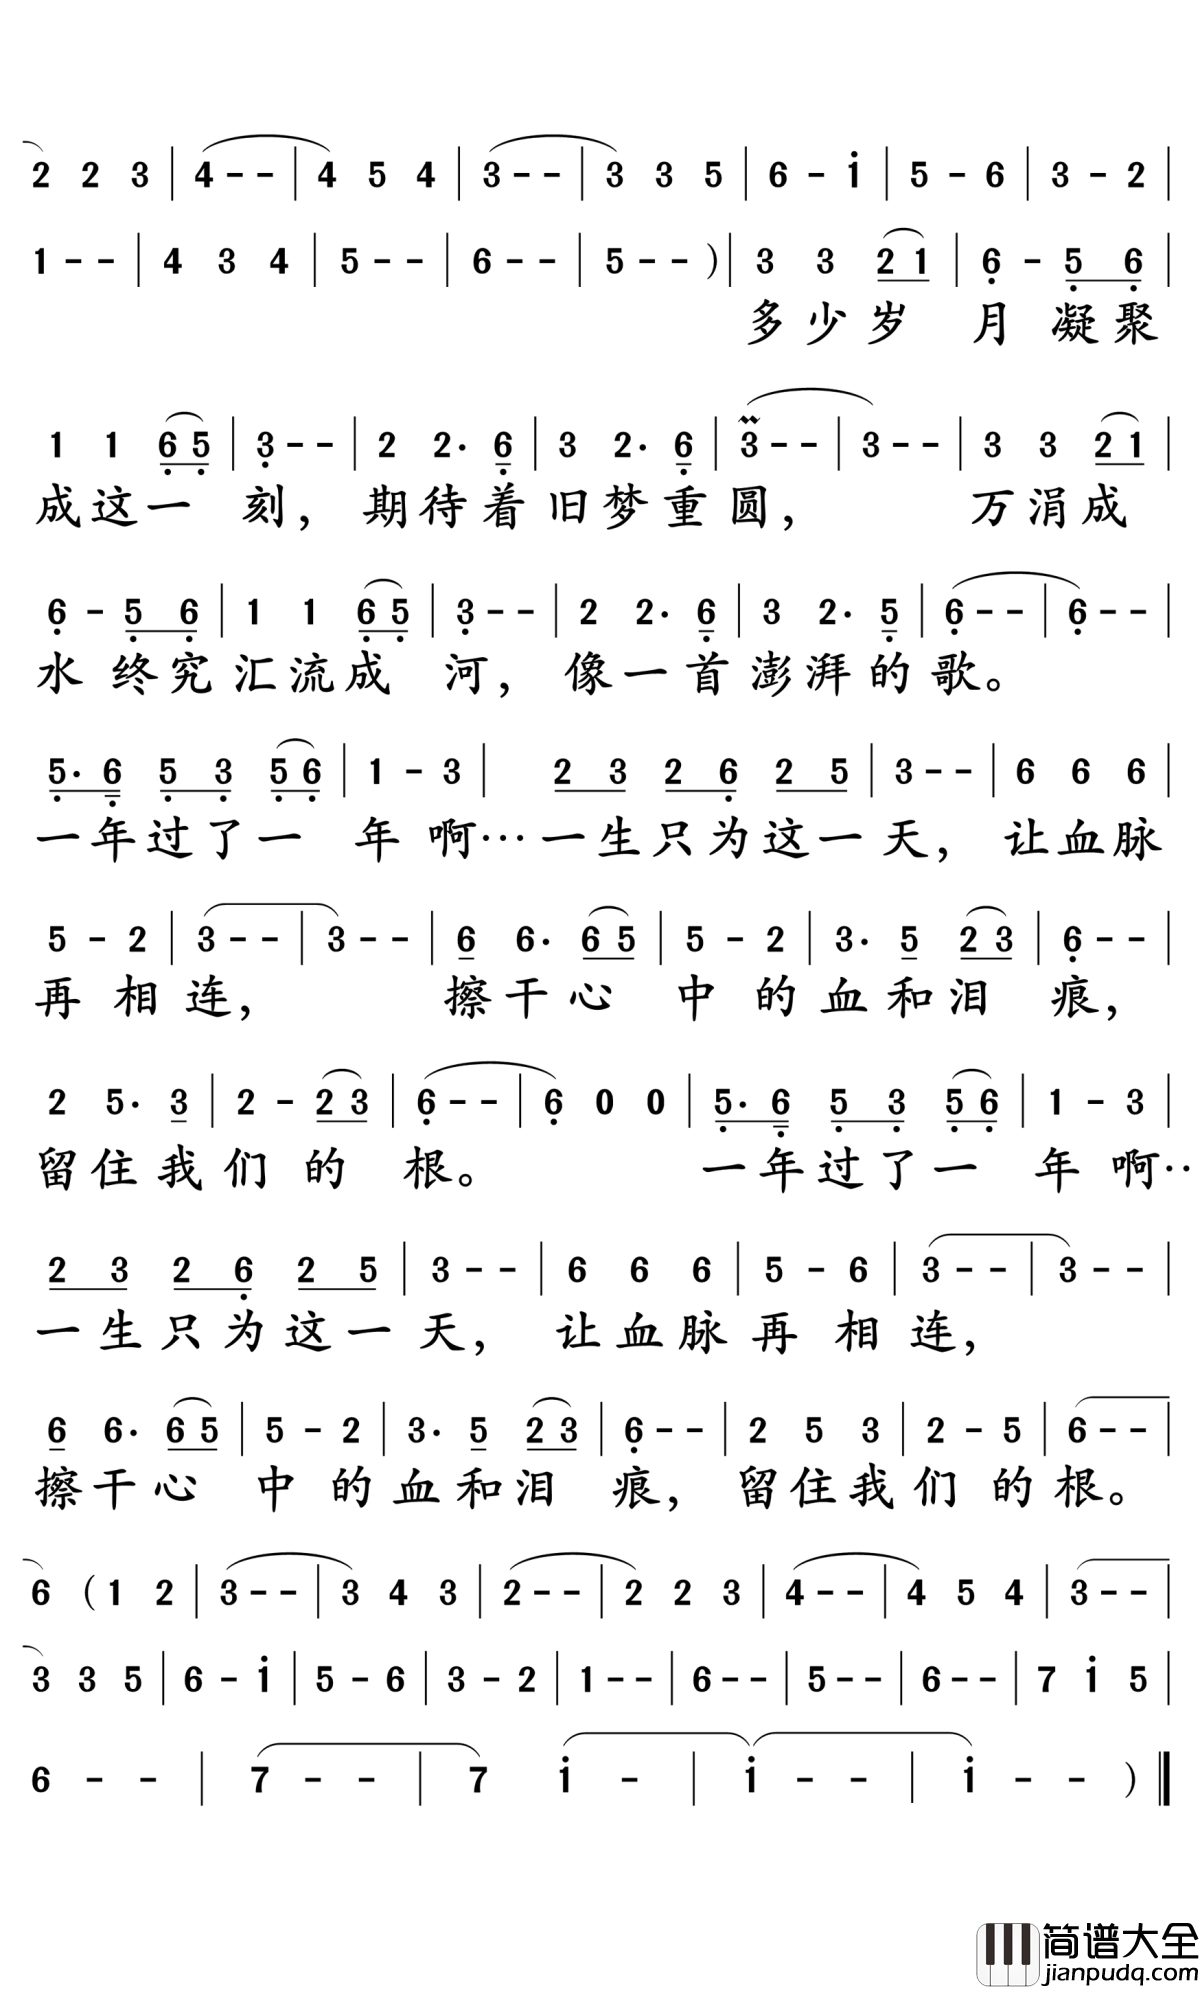 2 2 3 | 4 - - | 4 5 4 | 3 - - | 3 3 5 | 6 - i | 5 - 6 | 3 - 2 |
1 - - | 4 3 4 | 5 - - | 6 - - | 5 - - ) | 3 3 2 1 | 6 - 5 6 |
多少岁 月凝聚
1 1 6 5 | 3 - - | 2 2. 6 | 3 2. 6 | 3 - - | 3 - - | 3 3 2 1 |
成这一 刻，期待着旧梦重圆， 万涓成
6 - 5 6 | 1 1 6 5 | 3 - - | 2 2. 6 | 3 2. 5 | 6 - - | 6 - - |
水 终究汇流成 河，像一首澎湃的歌。
5. 6 5 3 5 6 | 1 - 3 | 2 3 2 6 2 5 | 3 - - | 6 6 6 |
一年过了一 年 啊…一生只为这一天，让血脉
5 - 2 | 3 - - | 3 - - | 6 6. 6 5 | 5 - 2 | 3. 5 2 3 | 6 - - |
再 相连， 擦干心 中 的血和泪 痕，
2 5. 3 | 2 - 2 3 | 6 - - | 6 0 0 | 5. 6 5 3 5 6 | 1 - 3 |
留住我们 的 根。 一年过了一 年 啊··
2 3 2 6 2 5 | 3 - - | 6 6 6 | 5 - 6 | 3 - - | 3 - - |
一生只为这一天， 让血脉再 相 连，
6 6. 6 5 | 5 - 2 | 3. 5 2 3 | 6 - - | 2 5 3 | 2 - 5 | 6 - - |
擦干心 中 的血和泪 痕， 留住我们 的根。
6 ( 1 2 | 3 - - | 3 4 3 | 2 - - | 2 2 3 | 4 - - | 4 5 4 | 3 - - |
3 3 5 | 6 - i | 5 - 6 | 3 - 2 | 1 - - | 6 - - | 5 - - | 6 - - | 7 i 5 |
6 - - | 7 - - | 7 i - | i - - | i - - ) ‖
简谱大全
jianpudq.com